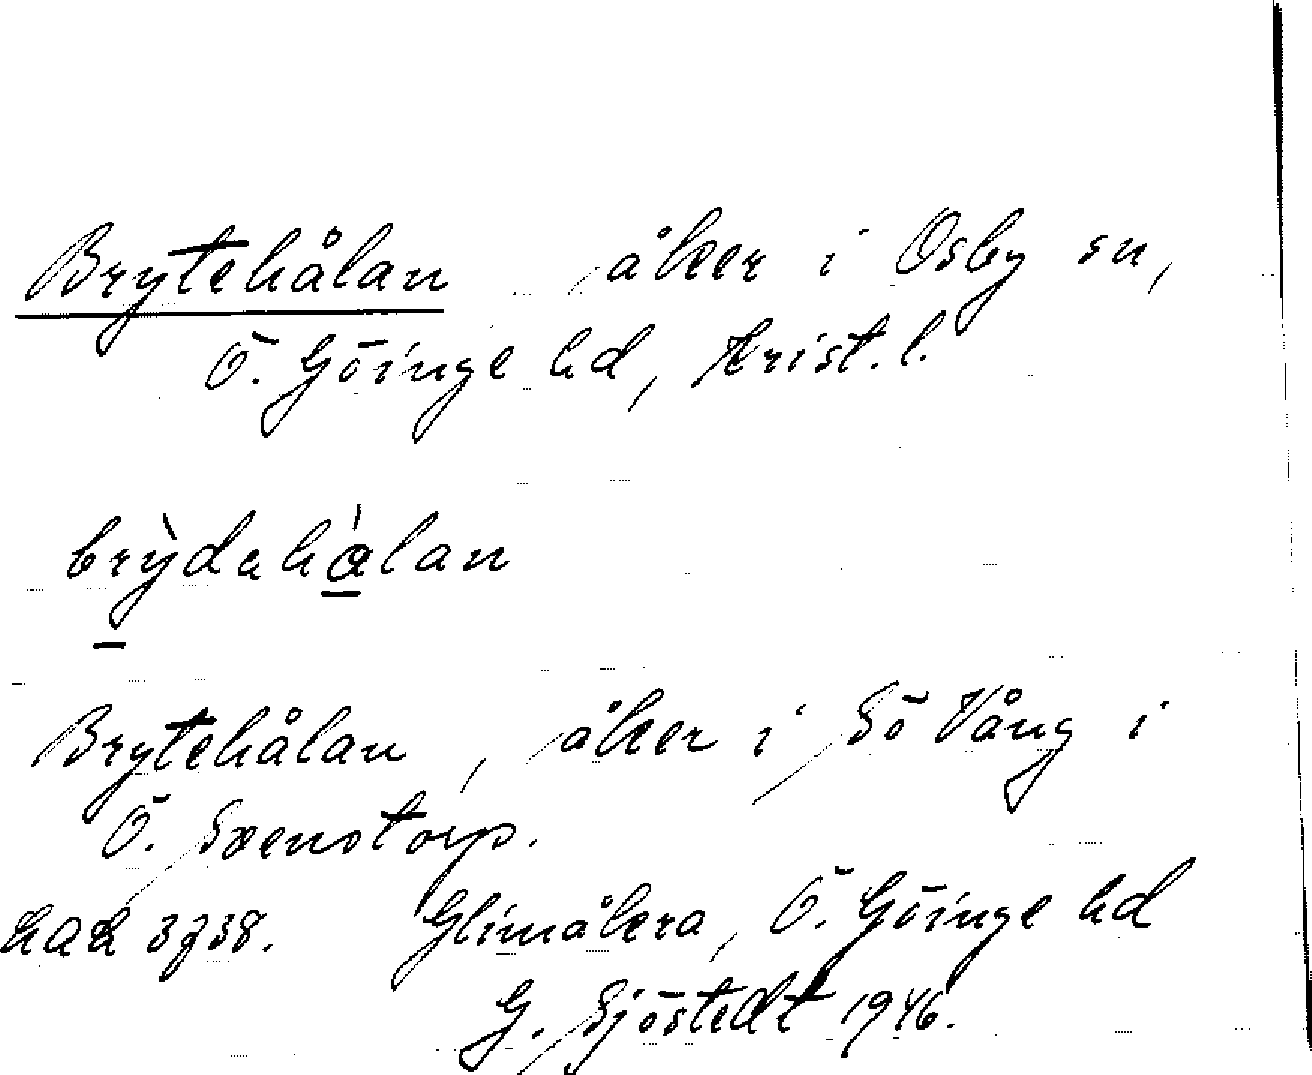 Brytehålan åker i Osby sn,
Ö. Göinge hd, Krist. l.
brỳdahàlan
Brytehålan, åker i Sö Vång i
Ö. Svenstorp.
Glimåkra, Ö. Göinge hd
G. Sjöstedt 1946.